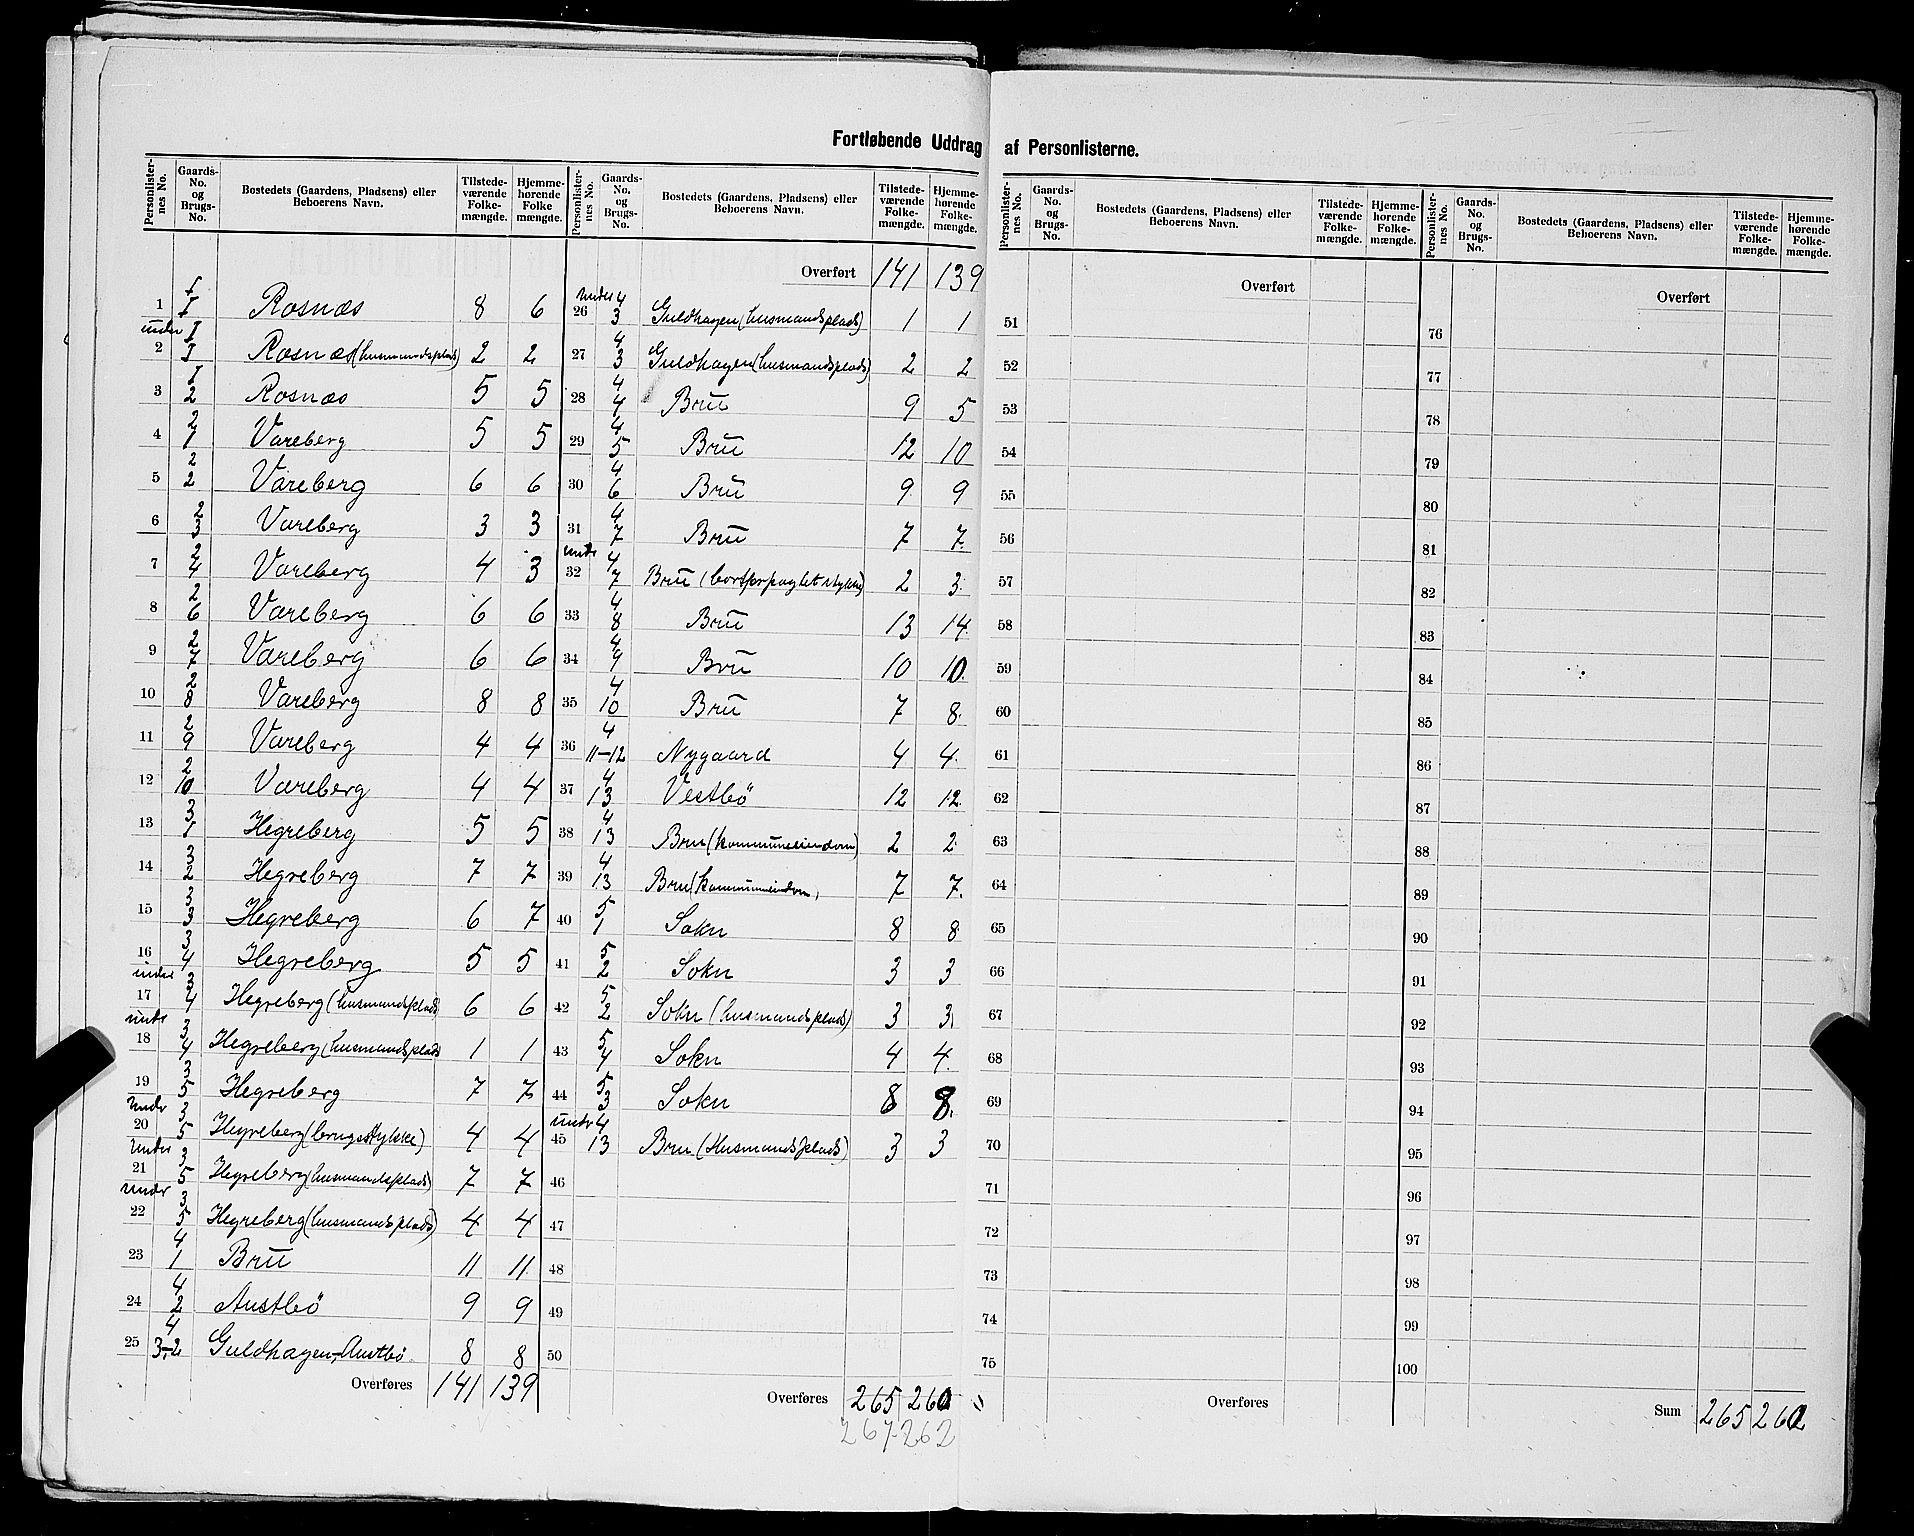 Fortløbende Uddrag af Personlisterne.
Personlister-nes No. | Gaards-No. og Brugs-No. | Bostedets (Gaardens, Pladsens) eller Beboerens Navn. | Tilstede-værende Folke-mængde. | Hjemme-hørende Folke mængde.
1 | 1 1 | Rosnæs | 8 | 6
2 | under 1 1 | Rosnæs (husmandsplads) | 2 | 2
3 | 1 2 | Rosnæs | 5 | 5
4 | 2 1 | Vareberg | 5 | 5
5 | 2 2 | Vareberg | 6 | 6
6 | 2 3 | Vareberg | 3 | 3
7 | 2 4 | Vareberg | 4 | 3
8 | 2 6 | Vareberg | 6 | 6
9 | 2 7 | Vareberg | 6 | 6
10 | 2 8 | Vareberg | 8 | 8
11 | 2 9 | Vareberg | 4 | 4
12 | 2 10 | Vareberg | 4 | 4
13 | 3 1 | Hegreberg | 5 | 5
14 | 3 2 | Hegreberg | 7 | 7
15 | 3 3 | Hegreberg | 6 | 7
16 | 3 4 | Hegreberg | 5 | 5
17 | under 3 4 | Hegreberg (husmandsplads) | 6 | 6
18 | under 3 4 | Hegreberg (husmandsplads | 1 | 1
19 | 3 5 | Hegreberg | 7 | 7
20 | Under 3 5 | Hegreberg (brugsstykke) | 4 | 4
21 | Under 3 5 | Hegreberg (husmandsplads) | 7 | 7
22 | Under 3 5 | Hegreberg (husmandsplads) | 4 | 4
23 | 4 1 | Bru | 11 | 11
24 | 4 2 | Austbö | 9 | 9
25 | 4 3,-2 | Guldhagen, Austbö. | 8 | 8
Overføres 141 139
Personlister-nes No. | Gaards-No. og Brugs-No. | Bostedets (Gaardens, Pladsens) eller Beboerens Navn. | Tilstede-værende Folke-mængde. | Hjemme-hørende Folke-mængde.
Overført 141 139
26 | Under 4 3 | Guldhagen (husmandsplads) | 1 | 1
27 | 4 3 | Guldhagen (husmandsplads) | 2 | 2
28 | 4 4 | Bru | 9 | 5
29 | 4 5 | Bru | 12 | 10
30 | 4 6 | Bru | 9 | 9
31 | 4 7 | Bru | 7 | 7.
32 | under 4 7 | Bru (bortforpagtet stykke) | 2 | 3.
33 | 4 8 | Bru | 13 | 14.
34 | 4 9 | Bru | 10 | 10.
35 | 4 10 | Bru | 7 | 8.
36 | 4 11-12 | Nygaard | 4 | 4.
37 | 4 13 | Vestbö | 12 | 12.
38 | 4 13 | Bru (kommuneeiendom) | 2 | 2
39 | 4 13 | Bru (kommuneiendom, | 7 | 7.
40 | 5 1 | Sokn | 8 | 8
41 | 5 2 | Sokn | 3 | 3
42 | 5 2 | Sokn (husmandsplads) | 3 | 3.
43 | 5 4 | Sokn | 4 | 4.
44 | 5 3 | Sokn | 8 | 8.
45 | under 4 13 | Bru (Husmandsplads) | 3 | 3
46
47
48
49
50
Overføres 265 260
267-262
Personlister-nes No. | Gaards-No. og Brugs-No. | Bostedets (Gaardens, Pladsens) eller Beboerens Navn. | Tilstede-værende Folke-mængde. | Hjemme-hørende Folke-mængde.
Overført
51
52
53
54
55
56
57
58
59
60
61
62
63
64
65
66
67
68
69
70
71
72
73
74
75
Overføres
Personlister-nes No. | Gaards-No. og Brugs-No. | Bostedets (Gaardens, Pladsens) eller Beboerens Navn. | Tilstede-værende Folke-mængde. | Hjemme-hørende Folke-mængde.
Overført
76
77
78
79
80
81
82
83
84
85
86
87
88
89
90
91
92
93
94
95
96
97
98
99
100
Sum 265 262